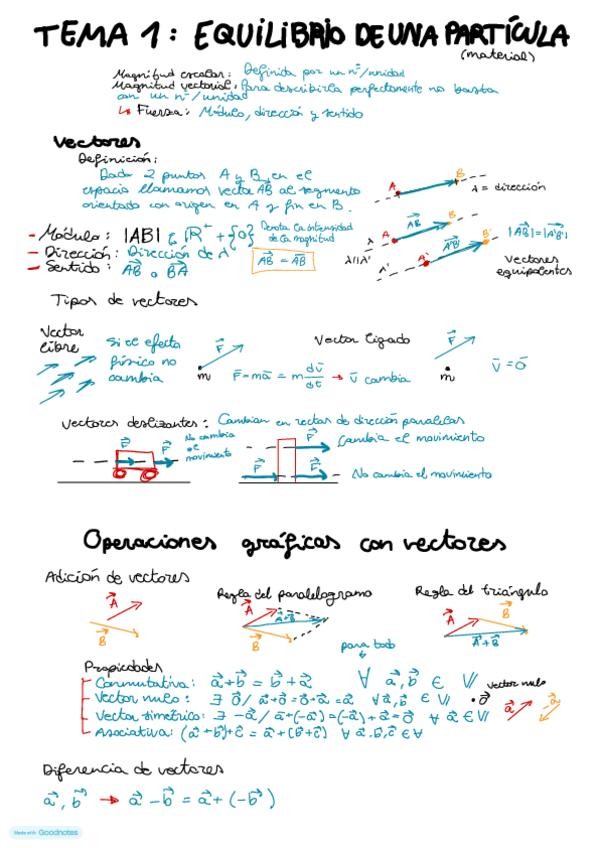 TEMA 1: EQUILIBRIO DE UNA PARTÍCULA
(material)
Magnitud escalar: Definida por un nº/unidad
Magnitud vectorial: Para describirla perfectamente no basta
con un nº/unidad
↳ Fuerza: Módulo, dirección y sentido
Vectores
Definición:
Dado 2 puntos A y B, en el
espacio llamamos vector AB⃗ al segmento
orientado con origen en A y fin en B.
A B λ = dirección
- Módulo: |AB| ∈ ℝ⁺ + {0} Denota la intensidad
de la magnitud
- Dirección: Dirección de λ
- Sentido: AB⃗ o BA⃗
AB⃗ = AB⃗
λ A AB⃗ B
λ||λ' A' A'B'⃗ B'
|AB⃗| = |A'B'⃗|
Vectores
equipolentes
Tipos de vectores
Vector
libre
Si el efecto
físico no
cambia
F⃗
m
Vector ligado
F⃗=ma⃗ = m dv⃗/dt → v⃗ cambia
F⃗
m
v⃗ = 0⃗
Vectores deslizantes: Cambian en rectas de dirección paralelas
F⃗ F⃗
No cambia
el
movimiento
F⃗ Cambia el movimiento
F⃗ F⃗ No cambia el movimiento
Operaciones gráficas con vectores
Adición de vectores
A⃗
B⃗
Regla del paralelogramo
A⃗
A+B⃗
B⃗
Regla del triángulo
A⃗
B⃗
A⃗+B⃗
para todo
Propiedades
Conmutativa: a⃗+b⃗ = b⃗+a⃗ ∀ a⃗,b⃗ ∈ V
Vector nulo: ∃ 0⃗ / a⃗+0⃗=0⃗+a⃗=a⃗ ∀a⃗,b⃗ ∈ V
Vector simétrico: ∃ -a⃗ / a⃗+(-a⃗)=(-a⃗)+a⃗=0⃗ ∀ a⃗ ∈ V
Asociativa: (a⃗+b⃗)+c⃗ = a⃗+(b⃗+c⃗) ∀ a⃗.b⃗,c⃗ ∈ V
Vector nulo
• 0⃗
a⃗
-a⃗
Diferencia de vectores
a⃗, b⃗ → a⃗ - b⃗ = a⃗ + (-b⃗)
Made with Goodnotes